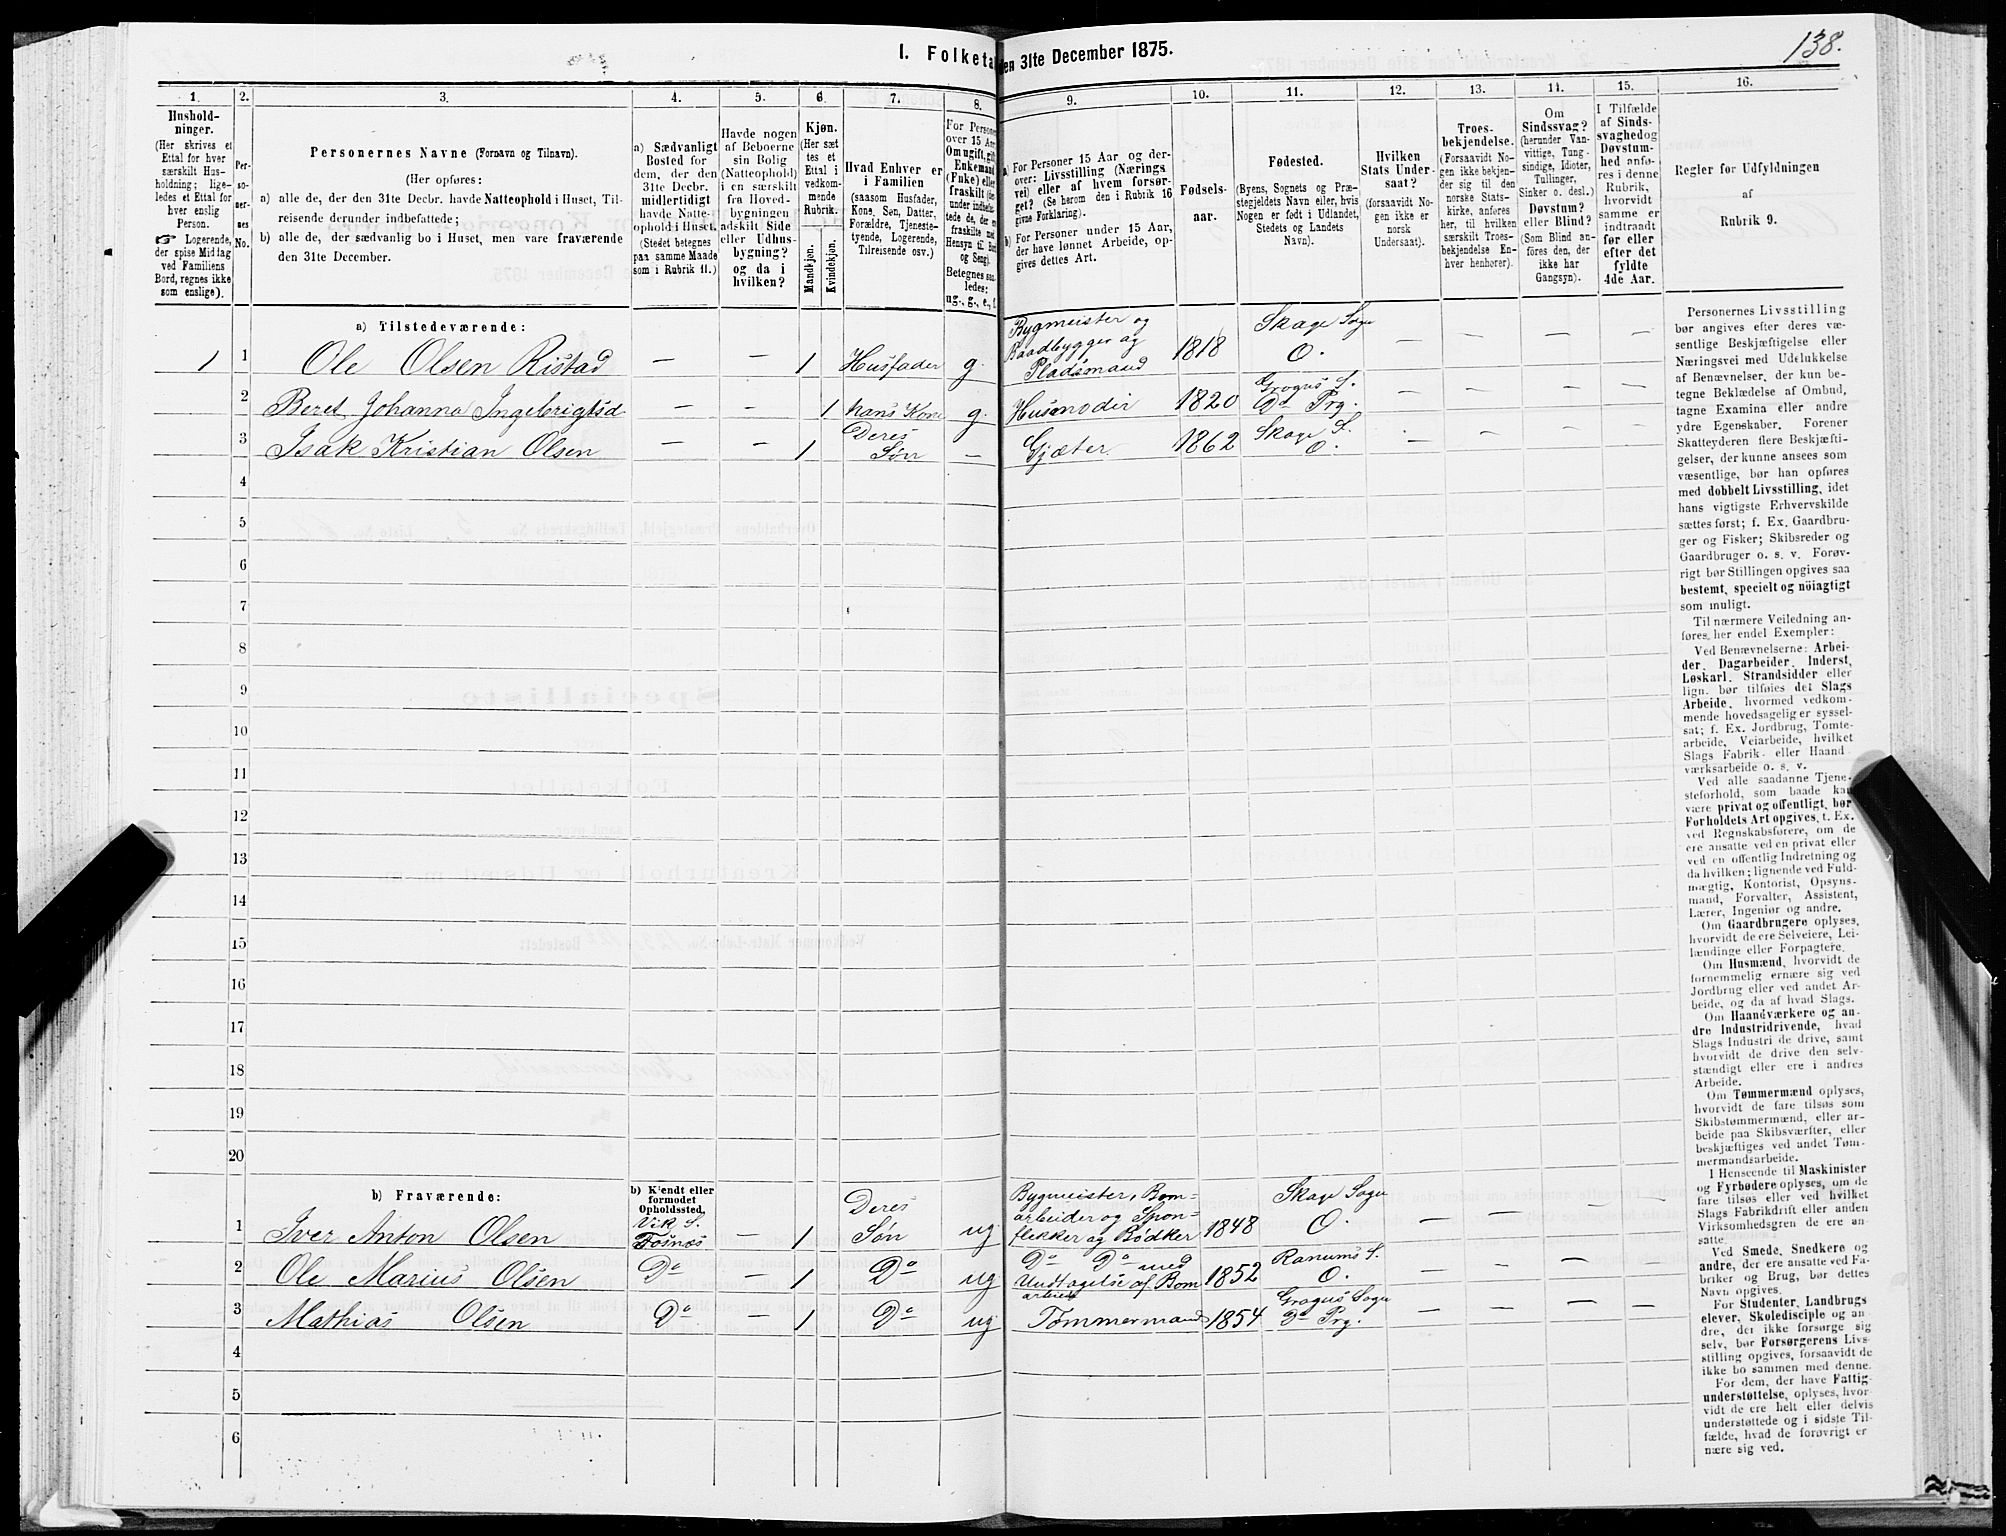 138.
I. Folketa
den 31te December 1875.
1.
2.
3.
4.
5.
6.
7.
8.
9.
10.
11.
12.
13.
14.
15.
16.
Hushold-
ninger.
(Her skrives et
Ettal for hver
særskilt Hus-
holdning; lige-
ledes et Ettal for
hver enslig
Person.
☞ Logerende,
der spise Middag
ved Familiens
Bord, regnes ikke
som enslige).
Per-
so-
ner-
nes
No.
Personernes Navne (Fornavn og Tilnavn).
(Her opføres:
a) alle de, der den 31te Decbr. havde Natteophold i Huset, Til-
reisende derunder indbefattede;
b) alle de, der sædvanlig bo i Huset, men vare fraværende
den 31te December.
a) Sædvanligt
Bosted for
dem, der den
31te Decbr.
midlertidigt
havde Natte-
ophold i Huset.
(Stedet betegnes
paa samme Maade
som i Rubrik 11.)
Havde nogen
af Beboerne
sin Bolig
(Natteophold)
i en særskilt
fra Hoved-
bygningen
adskilt Side
eller Udhus-
bygning?
og da i
hvilken?
Kjøn.
(Her sæt
tes et
Ettal i
vedkom-
mende
Rubrik.
Mandkjøn.
Kvindekjøn.
Hvad Enhver er
i Familien
(saasom Husfader,
Kone, Søn, Datter,
Forældre, Tjeneste-
tyende, Logerende,
Tilreisende osv.)
For Personer
over 15 Aar:
Om ugift, gift,
Enkemand
(Enke) eller
fraskilt (der-
under indbefat-
tede de, der ere
fraskilte med
Hensyn til Bord
og Seng).
Betegnes saa-
ledes:
ug., g., e., f.
a) For Personer 15 Aar og der-
over: Livsstilling (Nærings
vei) eller af hvem forsør-
get? (Se herom den i Rubrik 16
givne Forklaring).
b) For Personer under 15 Aar,
der have lønnet Arbeide, op-
gives dettes Art.
Fødsels-
aar.
Fødested.
(Byens, Sognets og Præ-
stegjeldets Navn eller, hvis
Nogen er født i Udlandet,
Stedets og Landets
Navn).
Hvilken
Stats Under-
saat?
(forsaavidt No-
gen ikke er
norsk
Undersaat).
Troes-
bekjendelse.
(Forsaavidt No-
gen ikke bekjen-
der sig til den
norske Stats-
kirke, anføres
her, til hvilken
særskilt Troes-
bekjendelse En-
hver henhører).
Om
Sindssvag?
(herunder Van-
vittige, Tung-
sindige, Idioter,
Tullinger,
Sinker o. desl.)
Døvstum?
eller Blind?
(Som Blind an-
føres den, der
ikke har
Gangsyn).
I Tilfælde
af Sinds-
svaghed og
Døvstum-
hed anfø-
res i denne
Rubrik,
hvorvidt
samme er
indtraadt
før eller
efter det
fyldte
4de Aar.
Regler for Udfyldningen
af
Rubrik 9.
a) Tilstedeværende:
1 1 Ole Olsen Ristad — — 1 Husfader g. Bygmeister og Baadbygger og Pladsmand 1818 Skage Sogn O. — — — —
2 Beret Johanna Ingebrigtsd — — 1 hans Kone g. Husmoder 1820 Grogns S. Do Prg. — — — —
3 Isak Kristian Olsen — — 1 Deres Søn — Gjæter. 1862 Skage S. O. — — — —
4
5
6
7
8
9
10
11
12
13
14
15
16
17
18
19
20
b) Fraværende:
b) Kjendt eller
formodet
Opholdssted.
1 Iver Anton Olsen Vik S. Fosnæs — 1 Deres Søn ug Bygmeister, Bom= arbeider og Spon= flekker og Bødker 1848 Skage Sogn O. — — — —
2 Ole Marius Olsen Do — 1 Do ug Do Do med Undtagelse af Bom arbeid 1852 Ranums S. O. — — — —
3 Mathias Olsen Do — 1 Do ug Tømmermand 1854 Grogns Sogn Do Prg. — — — —
4
5
6
Personernes Livsstilling
bør angives efter deres væ-
sentlige Beskjæftigelse eller
Næringsvei med Udelukkelse
af Benævnelser, der kun be-
tegne Beklædelse af Ombud,
tagne Examina eller andre
ydre Egenskaber. Forener
Skatteyderen flere Beskjæfti-
gelser, der kunne ansees som
væsentlige, bør han opføres
med dobbelt Livsstilling, idet
hans vigtigste Erhvervskilde
sættes først; f. Ex. Gaardbru-
ger og Fisker; Skibsreder og
Gaardbruger o. s. v. Forøv-
rigt bør Stillingen opgives saa
bestemt, specielt og nöiagtigt
som muligt.
Til nærmere Veiledning an-
føres her endel Exempler:
Ved Benævnelserne: Arbei-
der, Dagarbeider, Inderst,
Løskarl, Strandsidder eller
lign. bør tilføies det Slags
Arbeide, hvormed vedkom-
mende hovedsagelig er syssel-
sat; f. Ex. Jordbrug, Tomte-
arbeide, Veiarbeide, hvilket
Slags Fabrik- eller Haand-
værksarbeide o. s. v.
Ved alle saadanne Tjene-
steforhold, som baade kan
være privat og offentligt, bør
Forholdets Art opgives, t. Ex.
ved Regnskabsførere, om de
ere ansatte ved en privat eller
ved en offentlig Indretning og
da hvilken; lignende ved Fuld-
mægtig, Kontorist, Opsyns-
mand, Forvalter, Assistent,
Lærer, Ingeniør og andre.
Om Gaardbrugere oplyses,
hvorvidt de ere Selveiere, Lei-
lændinge eller Forpagtere.
Om Husmænd, hvorvidt de
fornemmelig ernære sig ved
Jordbrug eller ved andet Ar-
beide, og da af hvad Slags.
Om Haandværkere og an-
dre Industridrivende, hvad
Slags Industri de drive, samt
hvorvidt de drive den selv-
stændigt eller ere i andres
Arbeide.
Om Tømmermænd oplyses,
hvorvidt de fare tilsøs som
Skibstømmermænd, eller ar-
beide paa Skibsværfter, eller
beskjæftiges ved andet Tøm-
mermandsarbeide.
I Henseende til Maskinister
og Fyrbødere oplyses, om de
fare tilsøs eller ved hvilket
Slags Fabrikdrift eller anden
Virksomhedsgren de ere an-
satte.
Ved Smede, Snedkere og
andre, der ere ansatte ved Fa-
briker og Brug, bør dettes
Navn opgives.
For Studenter, Landbrugs
elever, Skoledisciple og an-
dre, der ikke forsørge sig
selv, bør Forsørgerens Livs-
stilling opgives, forsaavidt de
ikke bo sammen med denne.
For dem, der have Fattig-
understøttelse, oplyses, hvor-
vidt de ere helt eller delvis
understøttede og i sidste Til-
fælde, hvad de forøvrigt er
nære sig ved.